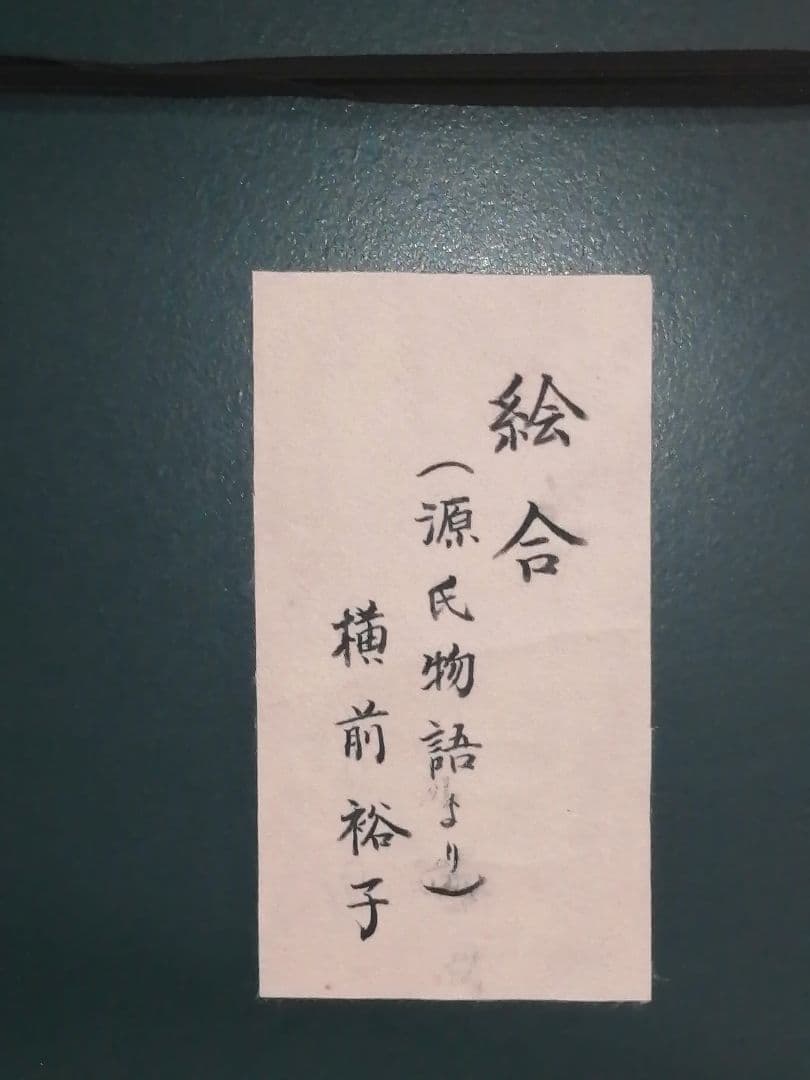 絵合
（源氏物語より）
横前裕子